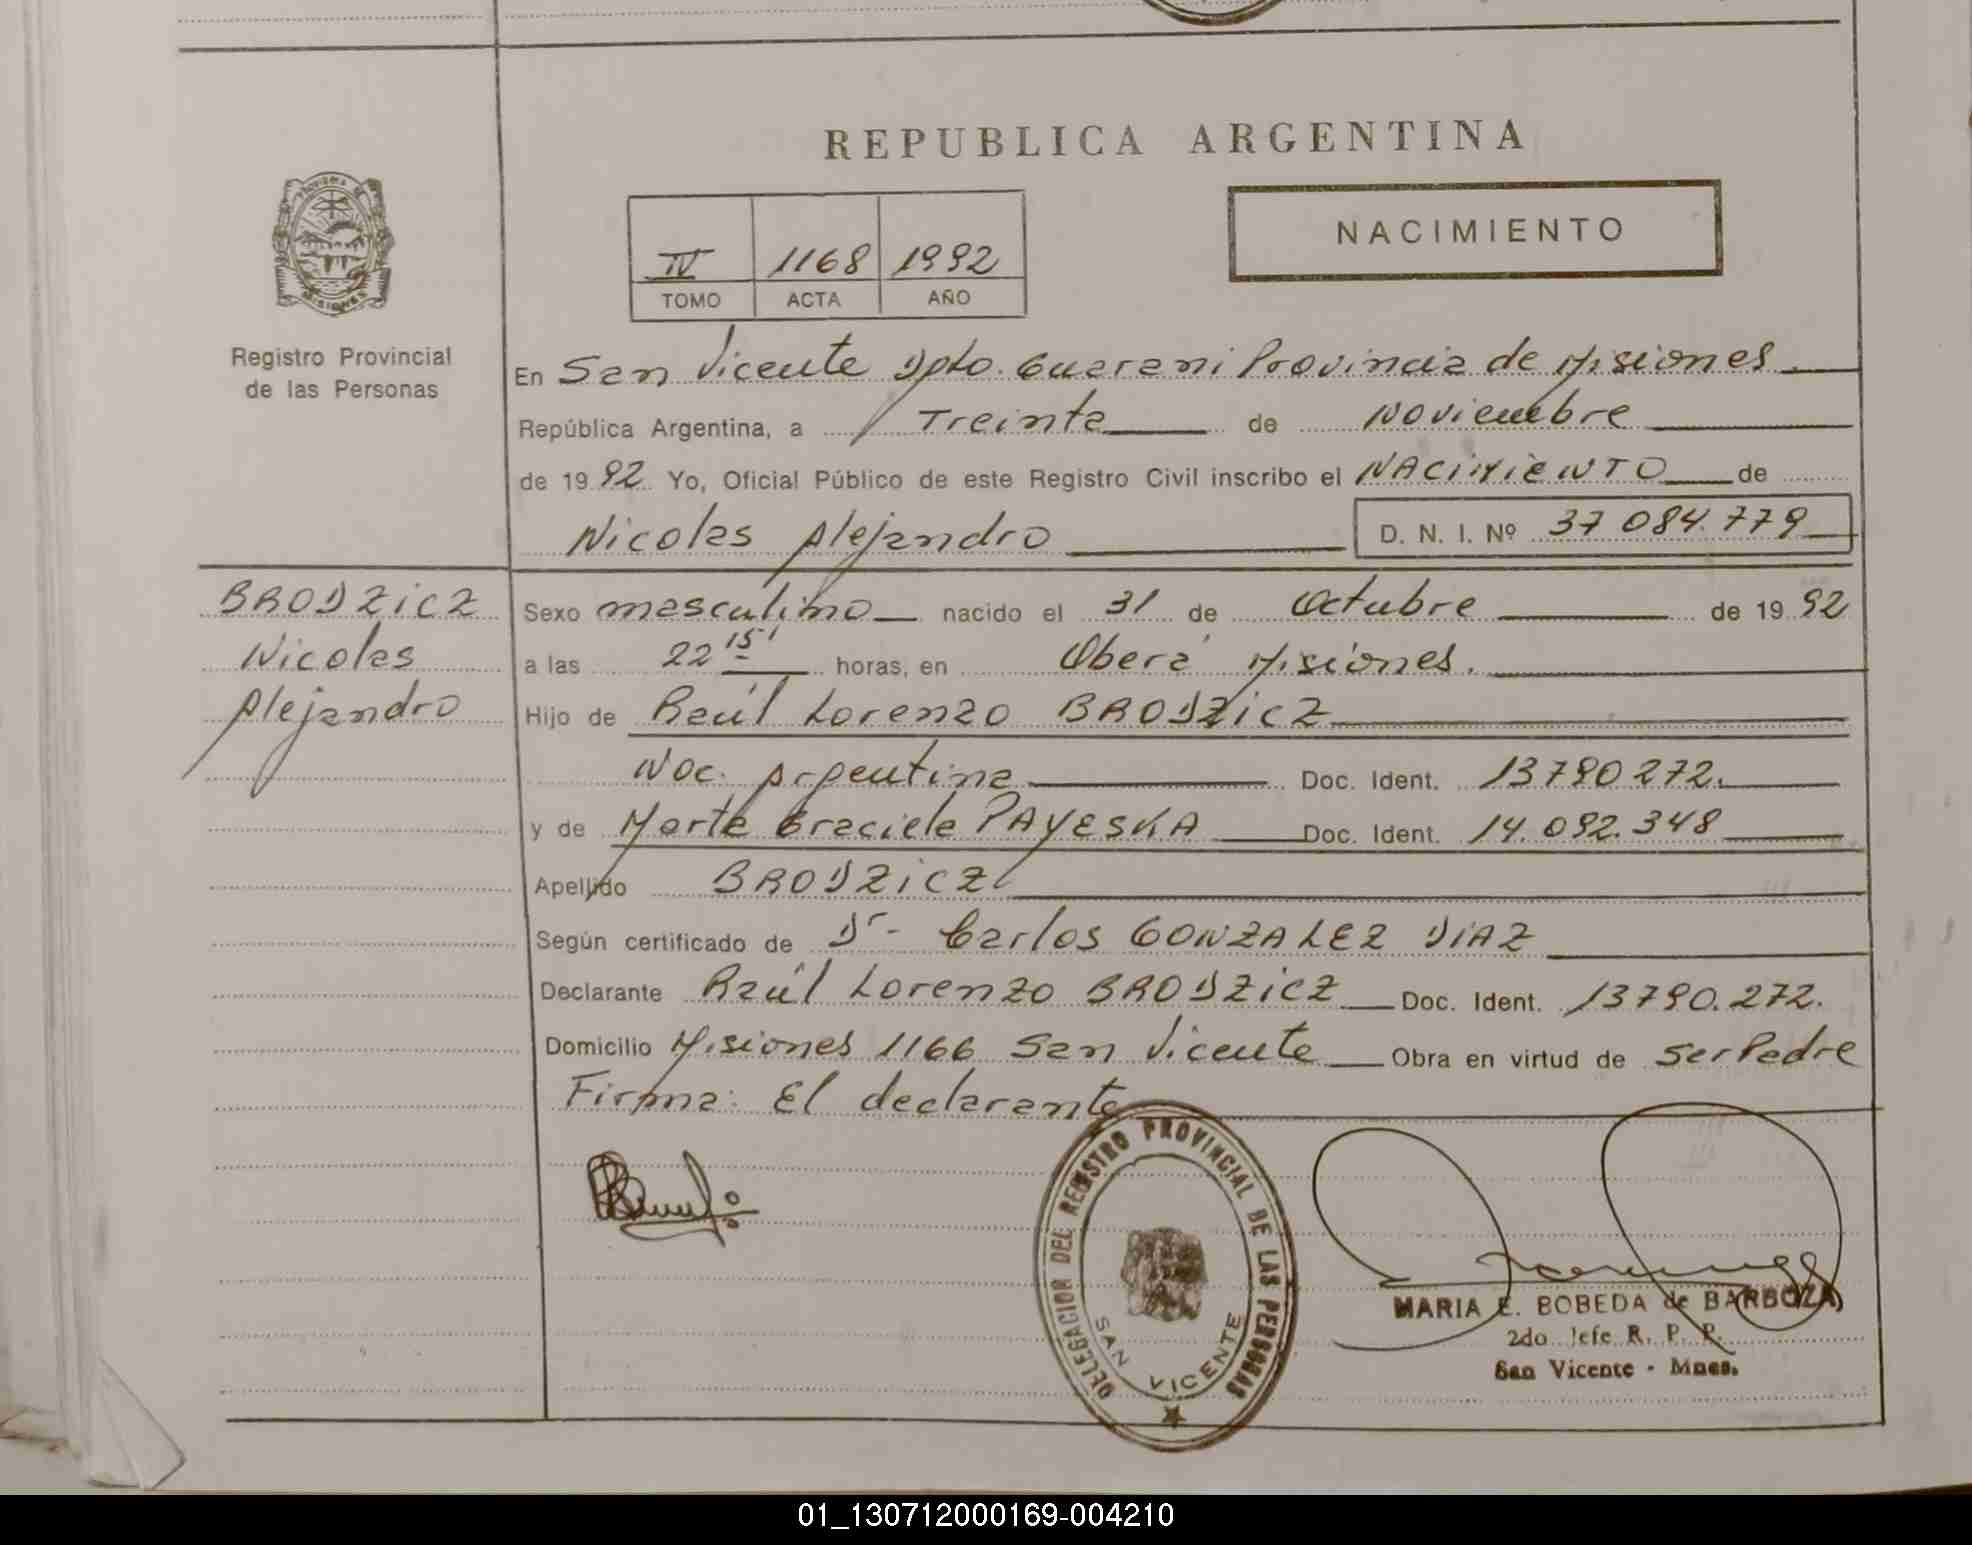 REPUBLICA ARGENTINA
IV 1168 1992
TOMO ACTA AÑO
NACIMIENTO
Registro Provincial
de las Personas
En San Vicente Dpto. Guarani Provincia de Misiones.
República Argentina, a Treinta de Noviembre
de 1992 Yo, Oficial Público de este Registro Civil inscribo el NACIMIENTO de
Nicolas Alejandro D. N. I. Nº 37 084.779
BRODZICZ
Nicolas
Alejandro
Sexo masculino nacido el 31 de Octubre de 1992
a las 22 15' horas, en Oberá Misiones.
Hijo de Raúl Lorenzo BRODZICZ
Nac. Argentina Doc. Ident. 13790272.
y de Marta Graciela PAYESKA Doc. Ident. 14.092.348
Apellido BRODZICZ
Según certificado de Dr- Carlos GONZALEZ DIAZ
Declarante Raúl Lorenzo BRODZICZ Doc. Ident. 13790.272.
Domicilio Misiones 1166 San Vicente Obra en virtud de ser Padre
Firma: El declarante
DELEGACION DEL REGISTRO PROVINCIAL DE LAS PERSONAS
SAN VICENTE
MARIA E. BOBEDA de BARBOZA
2do Jefe R. P. P.
San Vicente - Mnes.
01_130712000169-004210